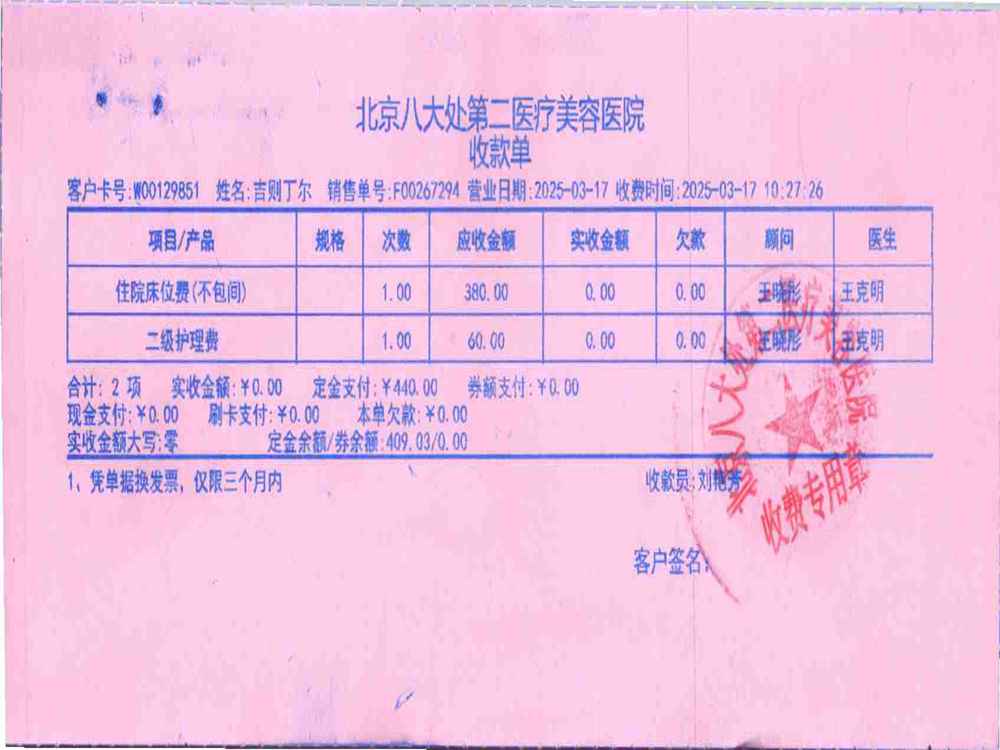 北京八大处第二医疗美容医院
收款单
客户卡号:W00129851 姓名:吉则丁尔 销售单号:F00267294 营业日期:2025-03-17 收费时间:2025-03-17 10:27:26
项目/产品 规格 次数 应收金额 实收金额 欠款 顾问 医生
住院床位费(不包间) 1.00 380.00 0.00 0.00 王晓彤 王克明
二级护理费 1.00 60.00 0.00 0.00 王晓彤 王克明
合计: 2 项 实收金额:¥0.00 定金支付:¥440.00 券额支付:¥0.00
现金支付:¥0.00 刷卡支付:¥0.00 本单欠款:¥0.00
实收金额大写:零 定金余额/券余额:409.03/0.00
1、凭单据换发票, 仅限三个月内 收款员:刘艳芳
客户签名:
收费专用章